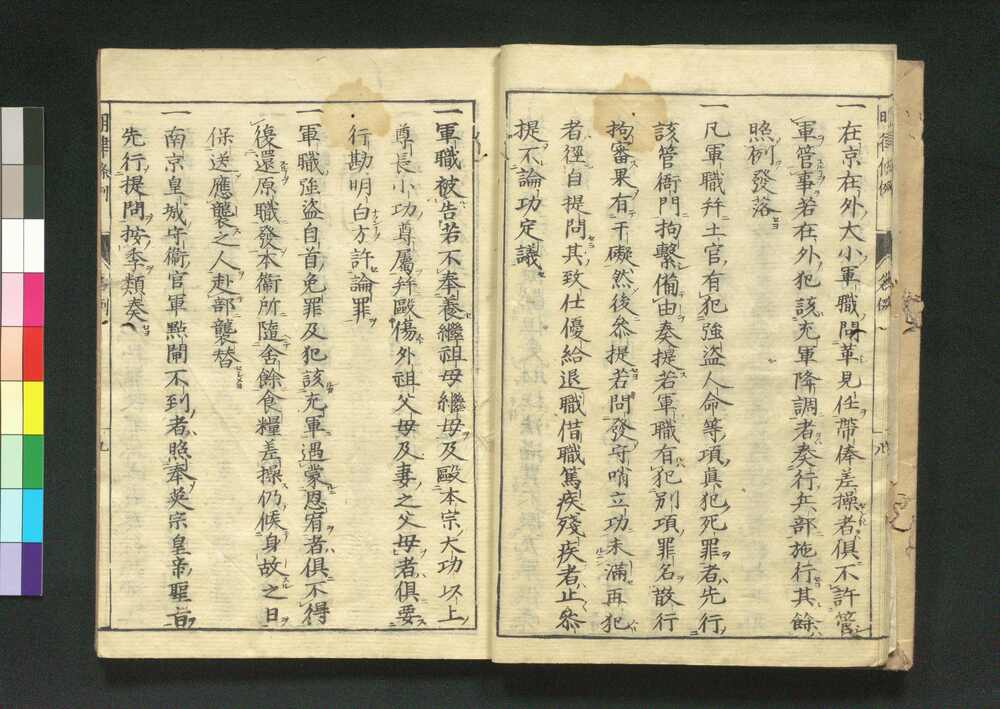 一在京在外大小軍職問革見任帶俸差操者俱不許管
軍管事若在外犯該充軍降調者奏行兵部施行其餘
照例發落
一凡軍職幷土官有犯強盗人命等項真犯死罪者先行
該管衙門拘繫備由奏提若軍職有犯別項罪名散行
拘審果有干礙然後叅提若問發守哨立功未滿再犯
者徑自提問其致仕優給退職借職篤疾殘疾者止叅
提不論功定議
一軍職被告若不奉養繼祖母繼母及毆本宗大功以上
尊長小功尊屬幷毆傷外祖父母及妻之父母者俱要
行勘明白方許論罪
一軍職強盗自首免罪及犯該充軍遇蒙恩宥者俱不得
復還原職發本衞所隨舍餘食糧差操仍候身故之日
保送應襲之人赴部襲替
一南京皇城守衞官軍點閘不到者照奉英宗皇帝聖旨
先行提問按季類奏
明律條例
九